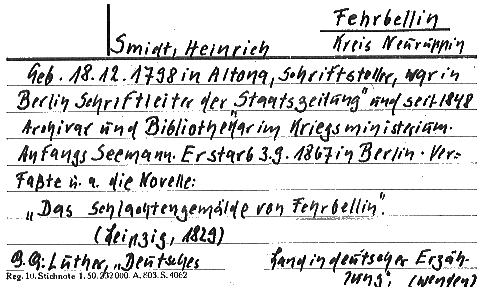 Fehrbellin
Smidt, Heinrich Kreis Neuruppin
Geb. 18.12.1798 in Altona, Schriftsteller, war in
Berlin Schriftleiter der „Staatszeitung" und seit 1848
Archivar und Bibliothekar im Kriegsministerium.
Anfangs Seemann. Er starb 3.9.1867 in Berlin. Ver=
faßte u. a. die Novelle:
„Das Schlachtengemälde von Fehrbellin".
(Leipzig, 1829)
B.G: Luther, „Deutsches Land in deutscher Erzäh-
lung", (wenden)
Reg. 10. Stichnote 1. 50. 202000. A. 803. S. 4062